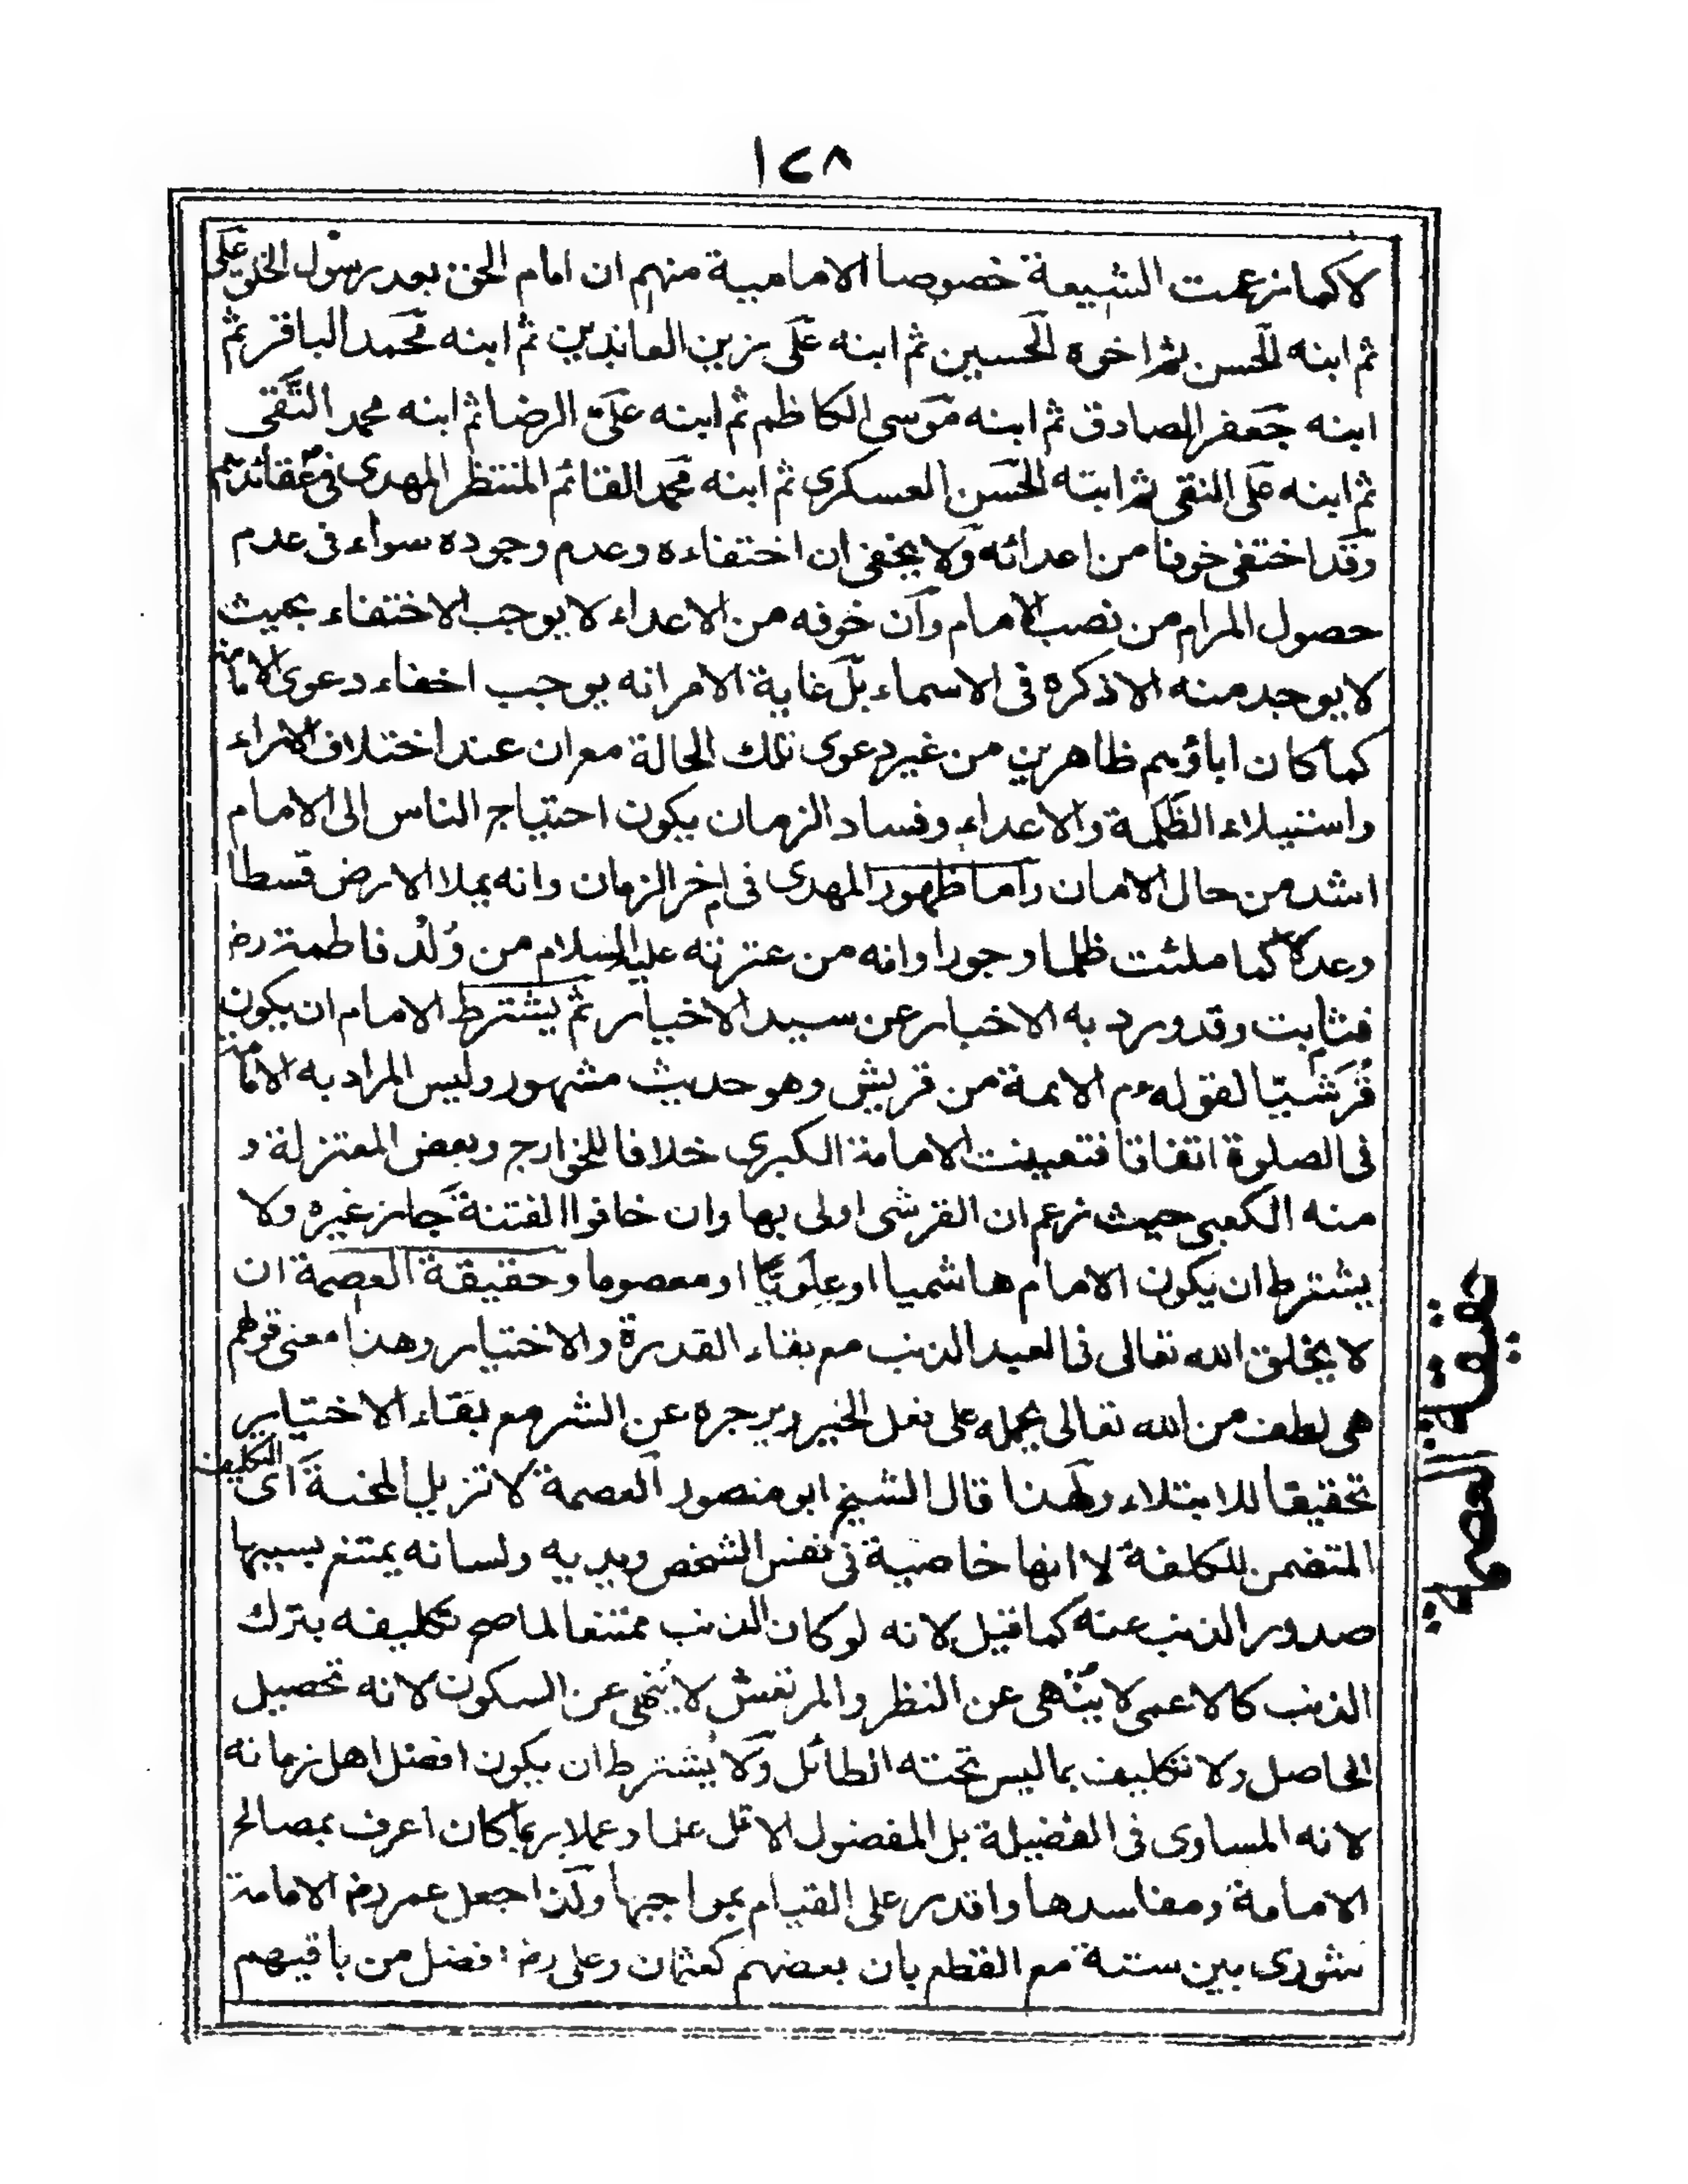 ١٢٨
لا كما زعمت الشيعة خصوصا الامامية منهم ان امام الحق بعد رسول الخلق علي
ثم ابنه الحسن ثم اخوه الحسين ثم ابنه على زين العابدين ثم ابنه محمد الباقر ثم
ابنه جعفر الصادق ثم ابنه موسى الكاظم ثم ابنه على الرضا ثم ابنه محمد التقى
ثم ابنه على النقى ثم ابنه الحسن العسكرى ثم ابنه محمد القائم المنتظر المهدى فى عقائدهم
وقد اختفى خوفا من اعدائه ولا يخفى ان اختفاءه وعدم وجوده سواء فى عدم
حصول المرام من نصب الامام وان خوفه من الاعداء لا يوجب الاختفاء بحيث
لا يوجد منه الا ذكره فى الاسماء بل غاية الامر انه يوجب اخفاء دعوى الامامة
كما كان اباؤهم ظاهرين من غير دعوى تلك الحالة مع ان عند اختلاف الاراء
واستيلاء الظلمة والاعداء وفساد الزمان يكون احتياج الناس الى الامام
اشد من حال الامان واما ظهور المهدى فى اخر الزمان وانه يملا الارض قسطا
وعدلا كما ملئت ظلما وجورا وانه من عترته عليه السلام من ولد فاطمة رض
فثابت وقد ورد به الاخبار عن سيد الاخيار ثم يشترط الامام ان يكون
قُرَشيّا لقوله عم الايمة من قريش وهو حديث مشهور وليس المراد به الامامة
فى الصلوة اتفاقا فتعينت الامامة الكبرى خلافا للخوارج وبعض المعتزلة و
منه الكعبى حيث زعم ان القرشى اولى بها وان خافوا الفتنة جاز غيره ولا
يشترط ان يكون الامام هاشميا او علويا او معصوما وحقيقة العصمة ان
لا يخلق الله تعالى فى العبد الذنب مع بقاء القدرة والاختيار وهذا معنى قولهم
هى لطف من الله تعالى يحمله على فعل الخير ويزجره عن الشر مع بقاء الاختيار
تحقيقا للابتلاء ولهذا قال الشيخ ابو منصور العصمة لا تزيل المحنة اى التكليف
المتضمن للكلفة لا انها خاصية فى نفس الشخص وبديه ولسانه يمتنع بسببها
صدور الذنب عنه كما قيل لانه لو كان الذنب ممتنعا لما صح تكليفه بترك
الذنب كالاعمى لا ينهى عن النظر والمرتعش لا ينهى عن السكون لانه تحصيل
الحاصل ولا تكليف بما ليس تحته الطائل ولا يُشترط ان يكون افضل اهل زمانه
لانه المساوى فى الفضيلة بل المفضول الاقل علما وعملا ربما كان اعرف بمصالح
الامامة ومفاسدها واقدر على القيام بمواجبها ولذا جعل عمر رض الامامة
شورى بين ستة مع القطع بان بعضهم كعثمان وعلى رض افضل من باقيهم
حقيقة العصمة